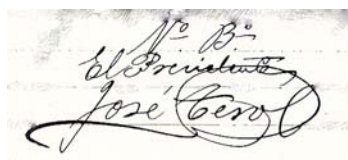 Vº Bº
El Presidente
José Tero